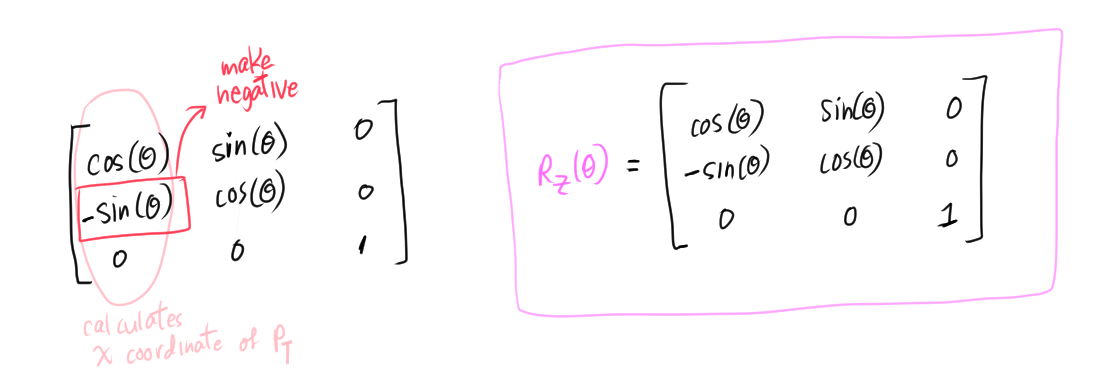 make
negative
cos(θ) sin(θ) 0
-sin(θ) cos(θ) 0
0 0 1
calculates
x coordinate of P_T
R_z(θ) =
cos(θ) sin(θ) 0
-sin(θ) cos(θ) 0
0 0 1